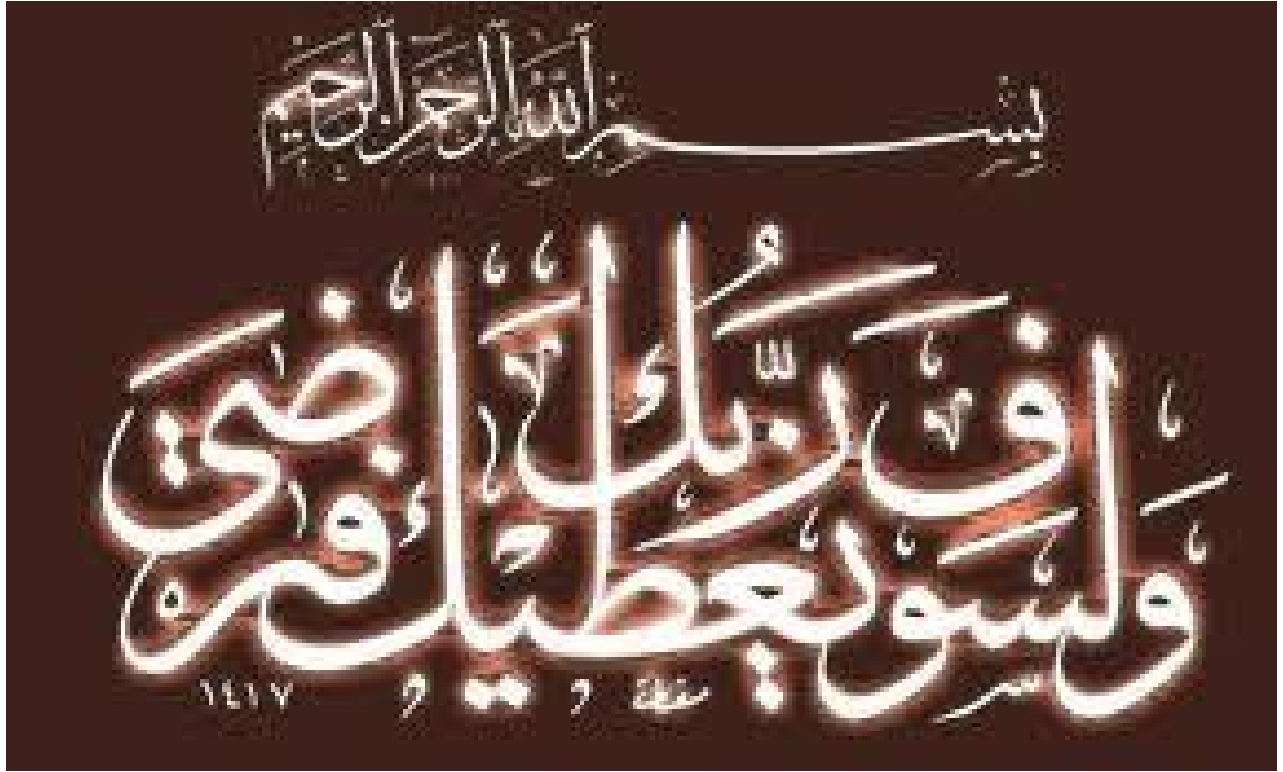 بسم الله الرحمن الرحيم
ولسوف يعطيك ربك فترضى
١٤١٧